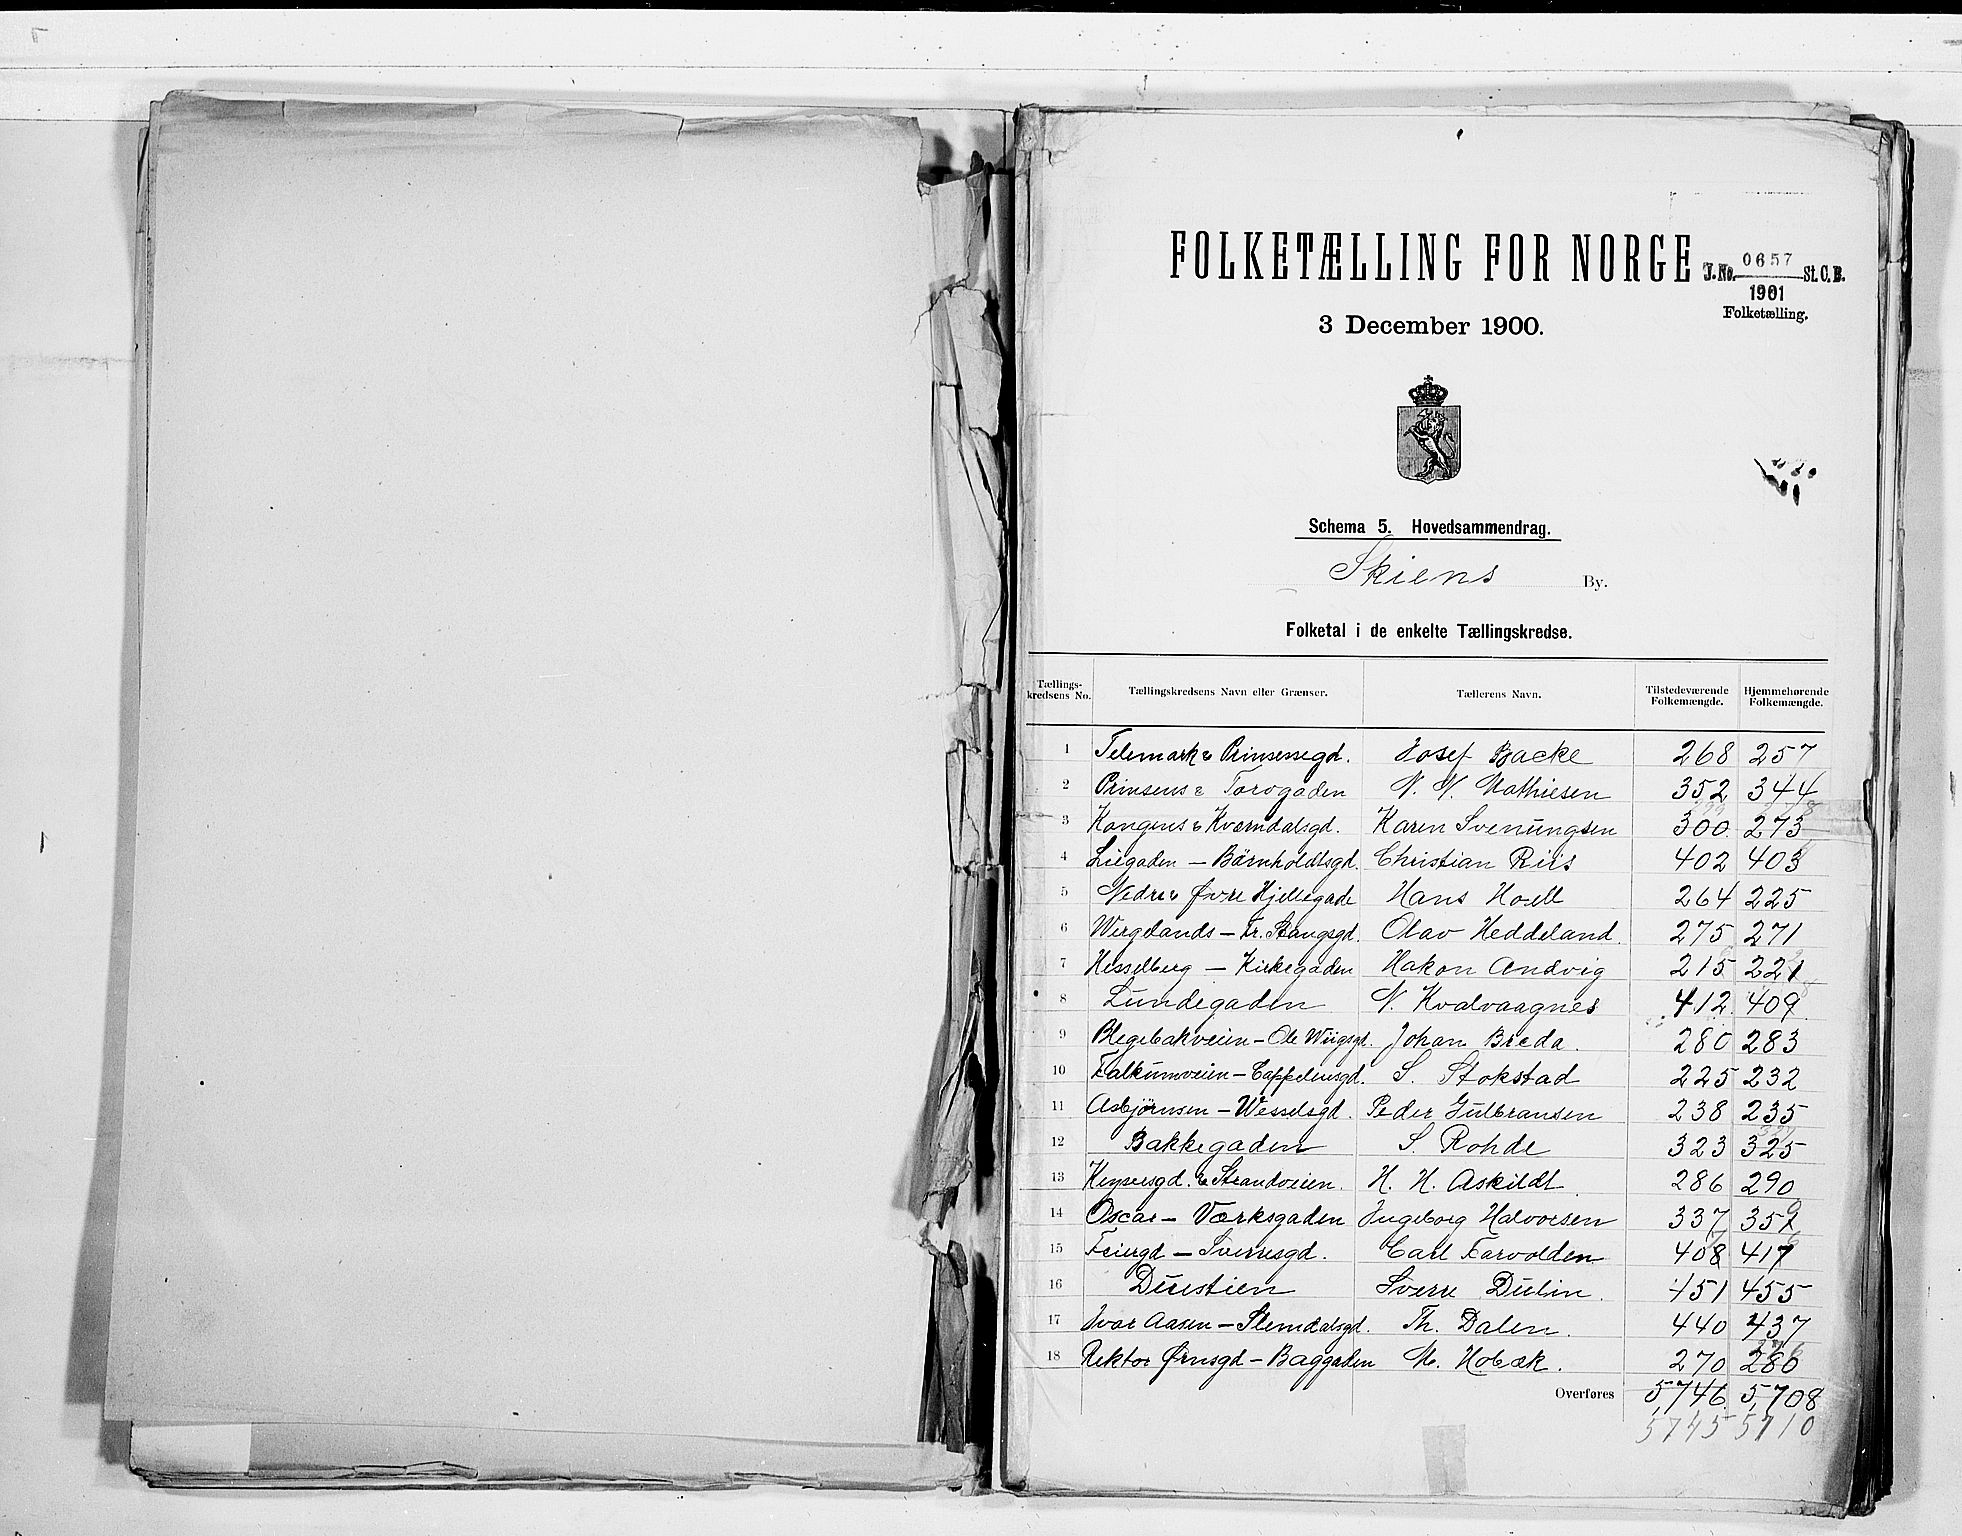 FOLKETÆLLING FOR NORGE
J. No. 0657 St. C. B.
1901
Folketælling.
3 December 1900.
Schema 5. Hovedsammendrag.
Skiens By.
Folketal i de enkelte Tællingskredse.
Tællings-kredsens No. Tællingskredsens Navn eller Grænser. Tællerens Navn. Tilstedeværende Folkemængde. Hjemmehørende Folkemængde.
1 Telemark & Prinsessegd. Josef Backe 268 257
2 Prinsens & Torvgaden N. N. Mathiesen 352 344
3 Kongens & Kværndalsgd. Karen Svenungsen 300 273
4 Liegaden - Børnholdtsgd. Christian Riis 402 403
5 Nedre & Øvre Hjellegade Hans Hoell 264 225
6 Wergelands - Fr. Stangsgd. Olav Heddeland. 275 271
7 Hesselberg - Kirkegaden Hakon Andvig 215 221
8 Lundegaden N. Kvalvaagnes 412 409
9 Blegebakveien - Ole Wiigsgd. Johan Breda. 280 283
10 Falkumveien - Cappelensgd. S. Stokstad 225 232
11 Asbjørnsen - Wesselsgd. Peder Gulbransen 238 235
12 Bakkegaden S. Rohde 323 325
13 Keysersgd. & Strandveien. H. H. Askildt. 286 290
14 Oscar - Værksgaden Ingeborg Halvorsen 337 359
15 Feiergd - Sverresgd. Carl Farvolden 408 417
16 Duestien Sverre Dulin. 451 455
17 Ivar Aasen - Slemdalsgd. Th. Dalen. 440 437
18 Rektor Ørnsgd - Baggaden M. Hobæk. 270 286
Overføres 5,746 5,708
5745 5710